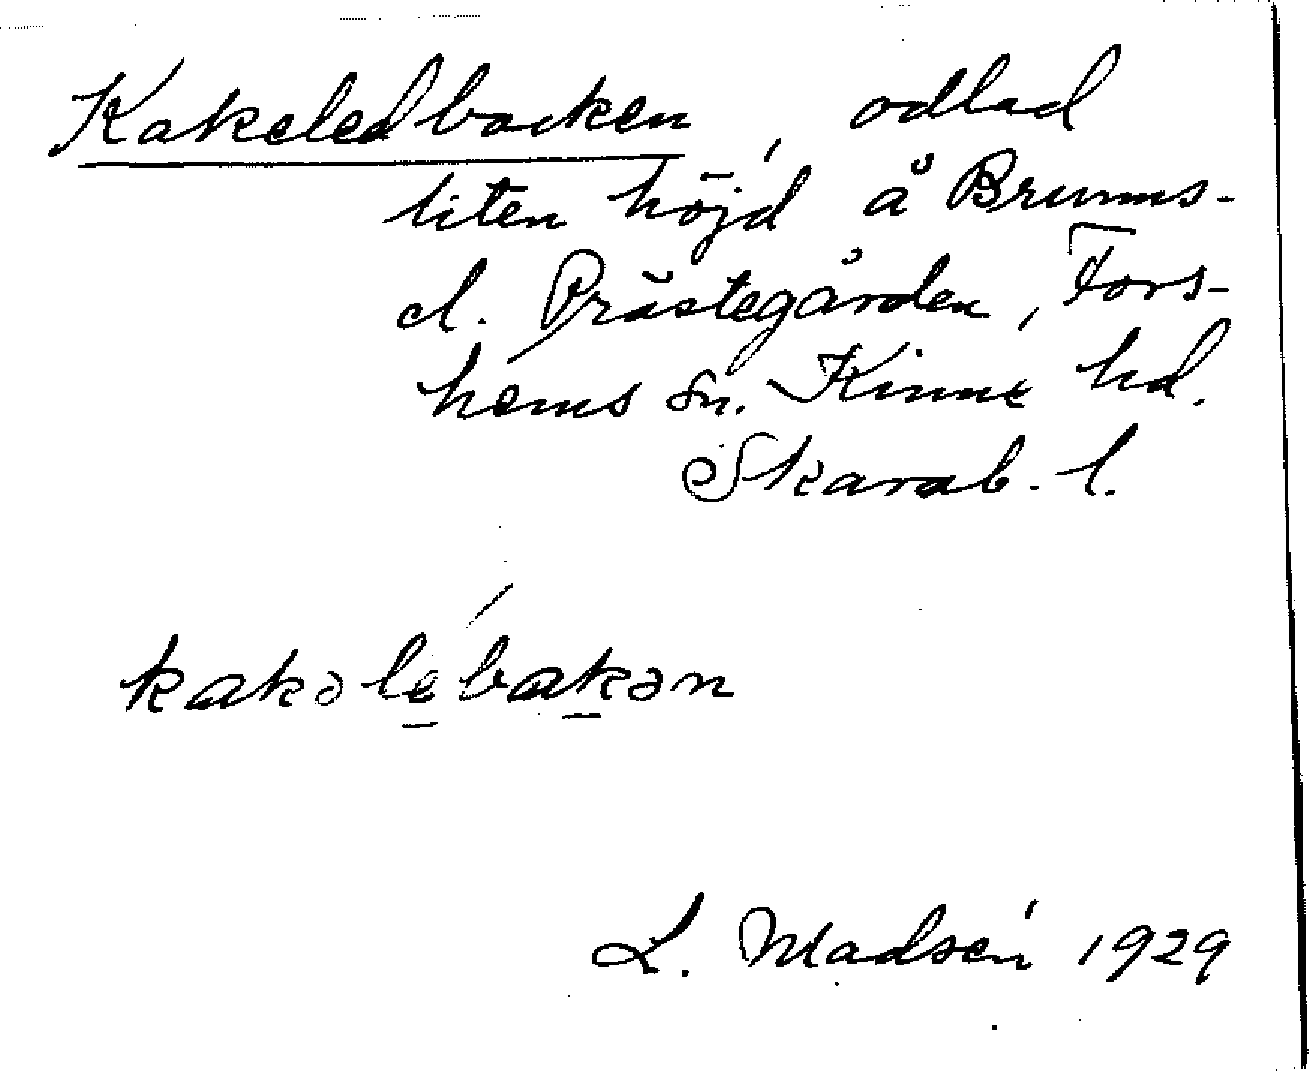 Kakeledbacken, odlad
liten höjd å Brunns-
d. Prästegården, Fors-
hems sn. Kinne hd.
Skarab. l.
kakəle̱´baḵən
L. Madsén 1929